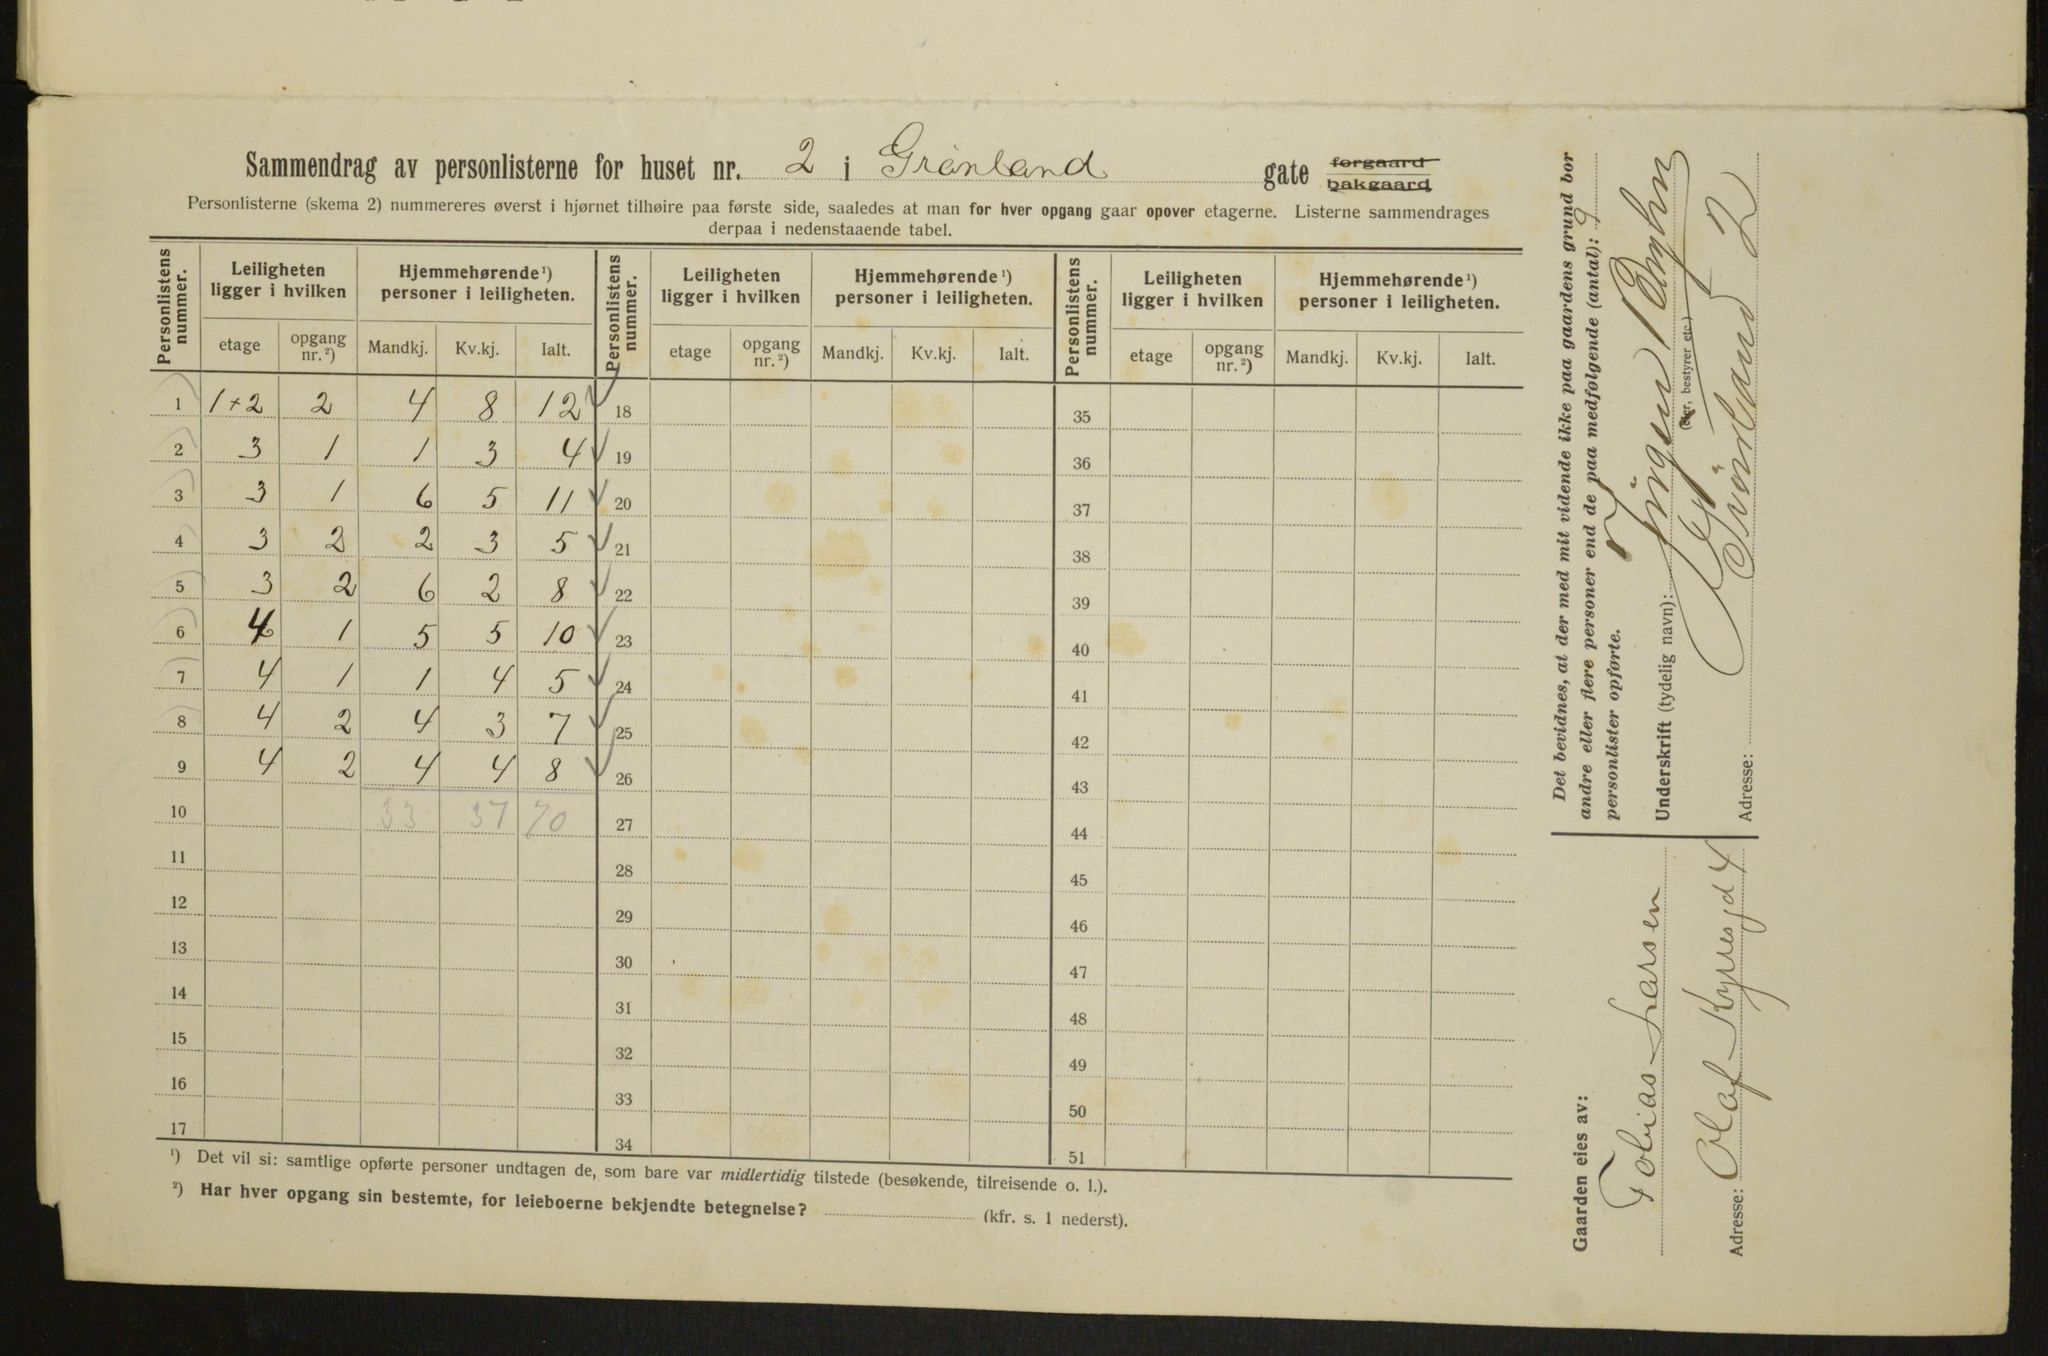 Sammendrag av personlisterne for huset nr. 2 i Grønland gate forgaard bakgaard
Personlisterne (skema 2) nummereres øverst i hjørnet tilhøire paa første side, saaledes at man for hver opgang gaar opover etagerne. Listerne sammendrages
derpaa i nedenstaaende tabel.
Personlistens nummer. Leiligheten ligger i hvilken Hjemmehørende¹) personer i leiligheten. Personlistens nummer. Leiligheten ligger i hvilken Hjemmehørende¹) personer i leiligheten. Personlistens nummer. Leiligheten ligger i hvilken Hjemmehørende¹) personer i leiligheten.
etage opgang nr.²) Mandkj. Kv.kj. Ialt. etage opgang nr.²) Mandkj. Kv.kj. Ialt. etage opgang nr.²) Mandkj. Kv.kj. Ialt.
1 1+2 2 4 8 12 18 35
2 3 1 1 3 4 19 36
3 3 1 6 5 11 20 37
4 3 2 2 3 5 21 38
5 3 2 6 2 8 22 39
6 4 1 5 5 10 23 40
7 4 1 1 4 5 24 41
8 4 2 4 3 7 25 42
9 4 2 4 4 8 26 43
10 33 37 70 27 44
11 28 45
12 29 46
13 30 47
14 31 48
15 32 49
16 33 50
17 34 51
¹) Det vil si: samtlige opførte personer undtagen de, som bare var midlertidig tilstede (besøkende, tilreisende o. l.).
²) Har hver opgang sin bestemte, for leieboerne bekjendte betegnelse? (kfr. s. 1 nederst).
Det bevidnes, at der med mit vidende ikke paa gaardens grund bor
andre eller flere personer end de paa medfølgende (antal): 9
personlister opførte.
Underskrift (tydelig navn): Jørgen
(eier, bestyrer etc.)
Adresse: Grønland 2
Gaarden eies av:
Tobias Larsen
Adresse: Olaf Kyresgd 4